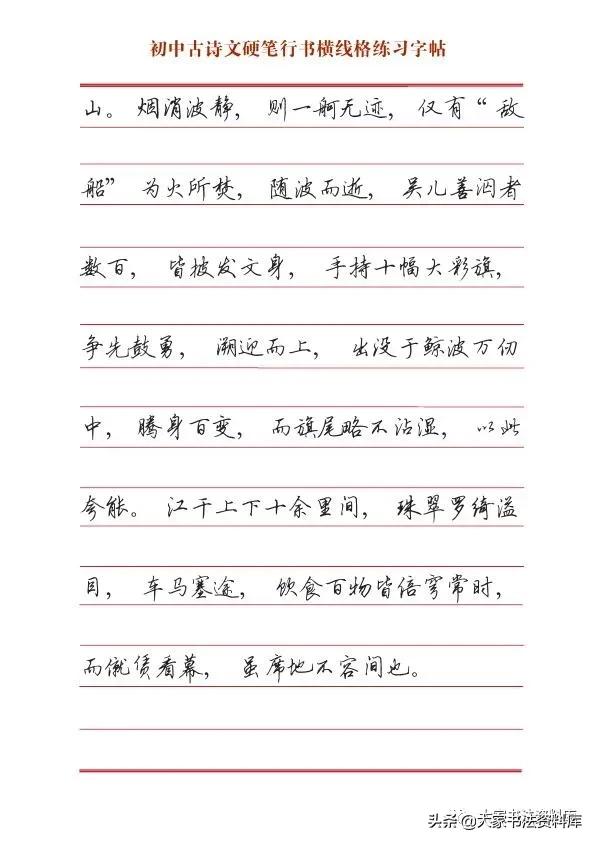 初中古诗文硬笔行书横线格练习字帖
山。烟消波静，则一舸无迹，仅有“敌
船”为火所焚，随波而逝，吴儿善泅者
数百，皆披发文身，手持十幅大彩旗，
争先鼓勇，溯迎而上，出没于鲸波万仞
中，腾身百变，而旗尾略不沾湿，以此
夸能。江干上下十余里间，珠翠罗绮溢
目，车马塞途，饮食百物皆倍穹常时，
而僦赁看幕，虽席地不容间也。
头条@大家书法资料库